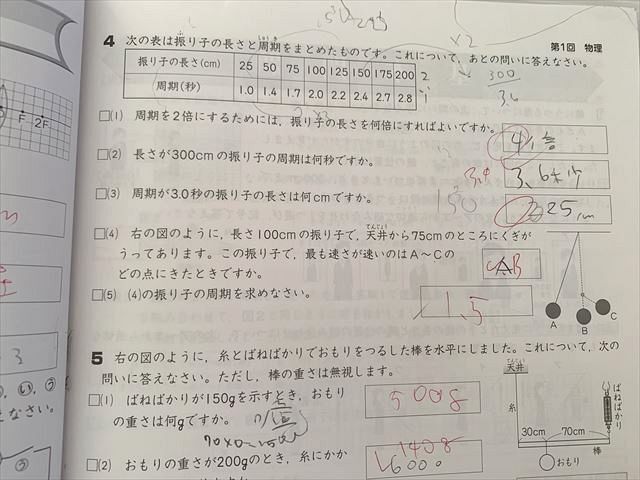 第1回 物理
4 次の表は振り子の長さと周期をまとめたものです。これについて,あとの問いに答えなさい。
振り子の長さ(cm) 25 50 75 100 125 150 175 200
周期(秒) 1.0 1.4 1.7 2.0 2.2 2.4 2.7 2.8
×2
300
□(1) 周期を2倍にするためには,振り子の長さを何倍にすればよいですか。
4倍
□(2) 長さが300cmの振り子の周期は何秒ですか。
3.4
3.6秒
□(3) 周期が3.0秒の振り子の長さは何cmですか。
150
225cm
□(4) 右の図のように,長さ100cmの振り子で,天井から75cmのところにくぎが
うってあります。この振り子で,最も速さが速いのはA～Cの
どの点にきたときですか。
B
□(5) (4)の振り子の周期を求めなさい。
1.5
A B C
5 右の図のように,糸とばねばかりでおもりをつるした棒を水平にしました。これについて,次の
問いに答えなさい。ただし,棒の重さは無視します。
□(1) ばねばかりが150gを示すとき,おもり
の重さは何gですか。
500g
□(2) おもりの重さが200gのとき,糸にかか
140g
600
天井
糸
ばねばかり
30cm 70cm
棒
おもり
F 2F